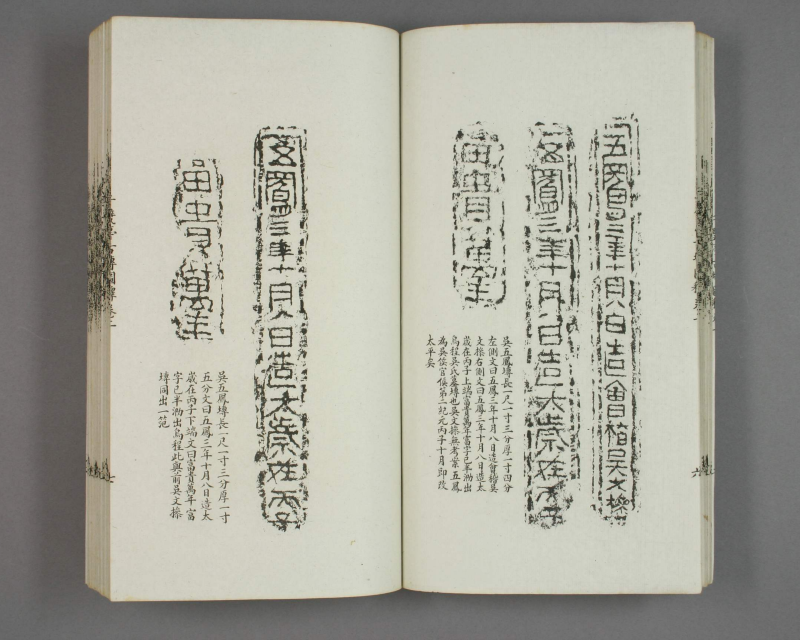 五鳳三年十月八日造會稽吳文操
五鳳三年十月八日造大歲在丙子
富貴萬年
吳五鳳塼長一尺一寸三分厚一寸四分
左側文曰五鳳三年十月八日造會稽吳
文操右側文曰五鳳三年十月八日造太
歲在丙子上端富貴萬年富字已半泐出
烏程吳氏墓塼也吳文操無考案五鳳
為吳侯官侯第二紀元丙子十月即改
太平矣
五鳳三年十月八日造大歲在丙子
富貴萬年
吳五鳳塼長一尺一寸三分厚一寸
五分文曰五鳳三年十月八日造太
歲在丙子下端文曰富貴萬年富
字已半泐出烏程此與前吳文操
塼同出一笵